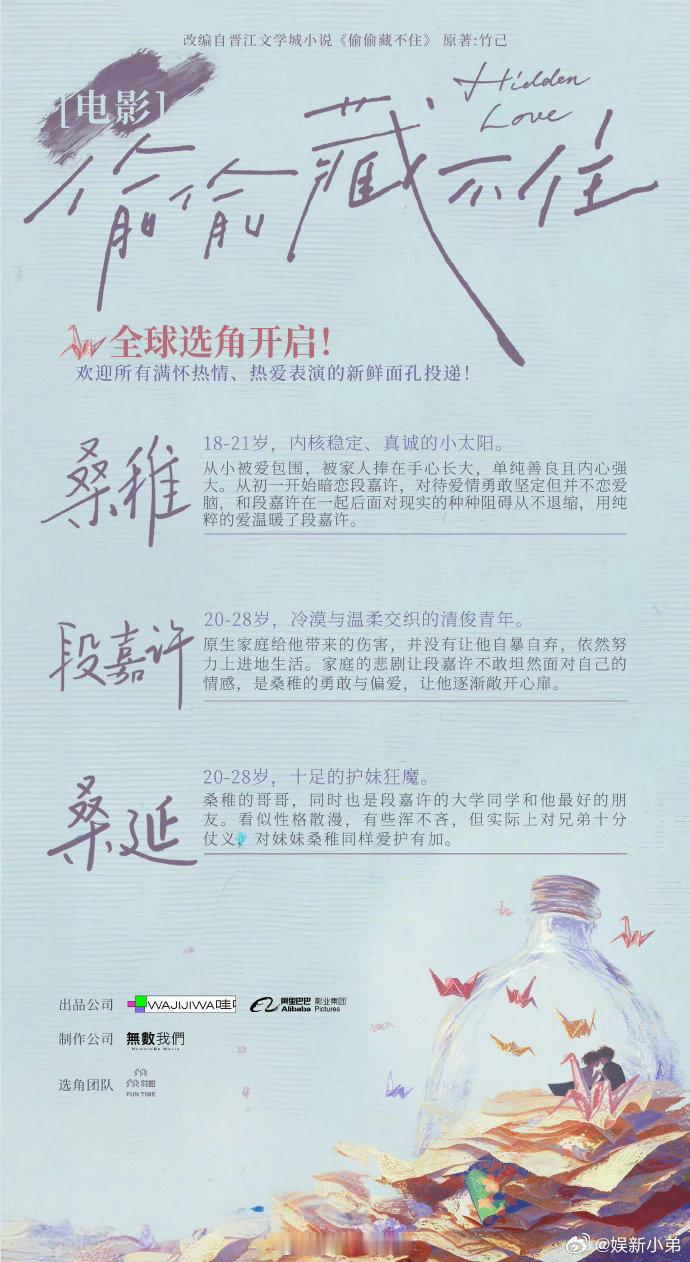 改编自晋江文学城小说《偷偷藏不住》 原著:竹已
[电影]
Hidden
Love
偷偷藏不住
全球选角开启!
欢迎所有满怀热情、热爱表演的新鲜面孔投递!
桑稚
18-21岁，内核稳定、真诚的小太阳。
从小被爱包围，被家人捧在手心长大，单纯善良且内心强
大。从初一开始暗恋段嘉许，对待爱情勇敢坚定但并不恋爱
脑，和段嘉许在一起后面对现实的种种阻碍从不退缩，用纯
粹的爱温暖了段嘉许。
段嘉许
20-28岁，冷漠与温柔交织的清俊青年。
原生家庭给他带来的伤害，并没有让他自暴自弃，依然努
力上进地生活。家庭的悲剧让段嘉许不敢坦然面对自己的
情感，是桑稚的勇敢与偏爱，让他逐渐敞开心扉。
桑延
20-28岁，十足的护妹狂魔。
桑稚的哥哥，同时也是段嘉许的大学同学和他最好的朋
友。看似性格散漫，有些浑不吝，但实际上对兄弟十分
仗义，对妹妹桑稚同样爱护有加。
出品公司 WAJIJIWA哇 阿里巴巴 影业集团
Alibaba Pictures
制作公司 無數我們
选角团队
FUN TIME
@娱新小弟